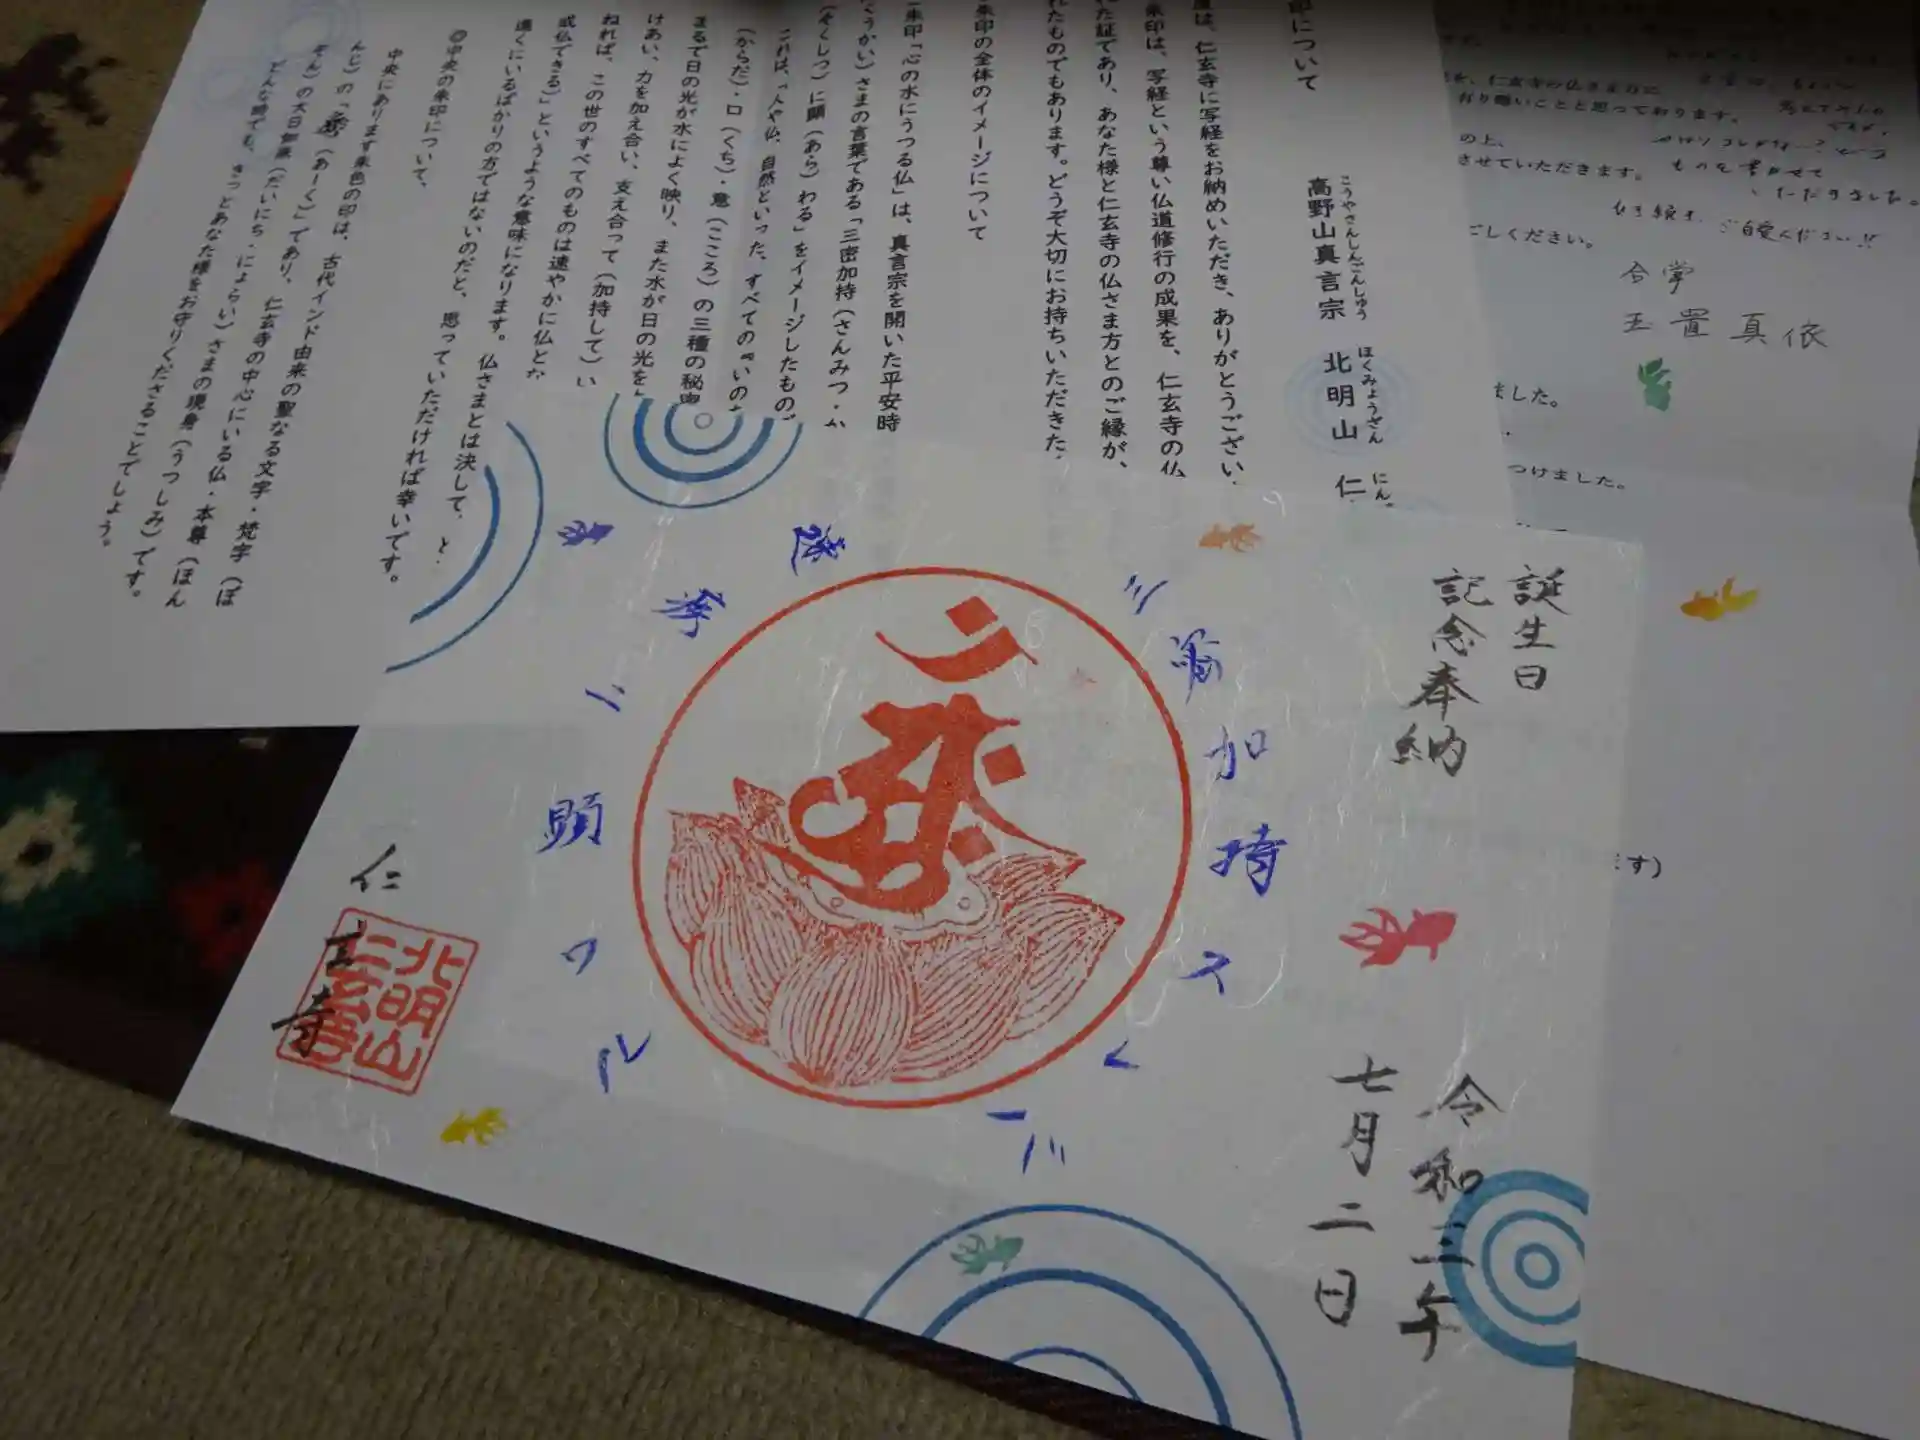 印について
高野山真言宗 北明山 仁
こうやさんしんごんしゅう ほくみょうざん にん
度は、仁玄寺に写経をお納めいただき、ありがとうござい
朱印は、写経という尊い仏道修行の成果を、仁玄寺の仏
れた証であり、あなた様と仁玄寺の仏さま方とのご縁が、
れたものでもあります。どうぞ大切にお持ちいただきた
朱印の全体のイメージについて
朱印「心の水にうつる仏」は、真言宗を開いた平安時
くうかい)さまの言葉である「三密加持(さんみつ・か
(そくしつ)に顕(あら)わる」をイメージしたもの
これは、「人や仏、自然といった、すべての"いの
(からだ)・口(くち)・意(こころ)の三種の秘密
まるで日の光が水によく映り、また水が日の光を
けあい、力を加え合い、支え合って(加持して)い
ねれば、この世のすべてのものは速やかに仏とな
成仏できる)」というような意味になります。仏さまとは決して、
遠くにいるばかりの方ではないのだと、思っていただければ幸いです。
◎中央の朱印について、
中央にあります朱色の印は、古代インド由来の聖なる文字・梵字(ぼ
んじ)の「(あーく)」であり、仁玄寺の中心にいる仏・本尊(ほん
ぞん)の大日如来(だいにち・にょらい)さまの現身(うつしみ)です。
どんな時でも、きっとあなた様をお守りくださることでしょう。
を、仁玄寺の仏さま方に
有り難いことと思っております。
の上、
させていただきます。
ものを書かせて
いただきました。
ご自愛ください!!
ごしください。
合掌
玉置真依
ました。
つけました。
ます)
誕生日
記念奉納
令和三年
七月二日
三密加持スレバ
速疾ニ顕ワル
仁玄寺
北明山
仁玄寺